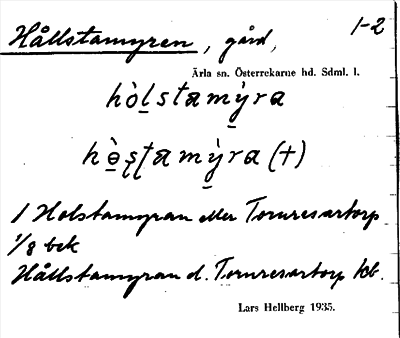 1-2
Hållstamyren, gård,
Ärla sn. Österrekarne hd. Sdml. l.
hòlstamỳra
hòstamỳra (+)
1 Holstamyran eller Torvresartorp
1/8 bek
Hållstamyran d. Torvresartorp kb.
Lars Hellberg 1935.